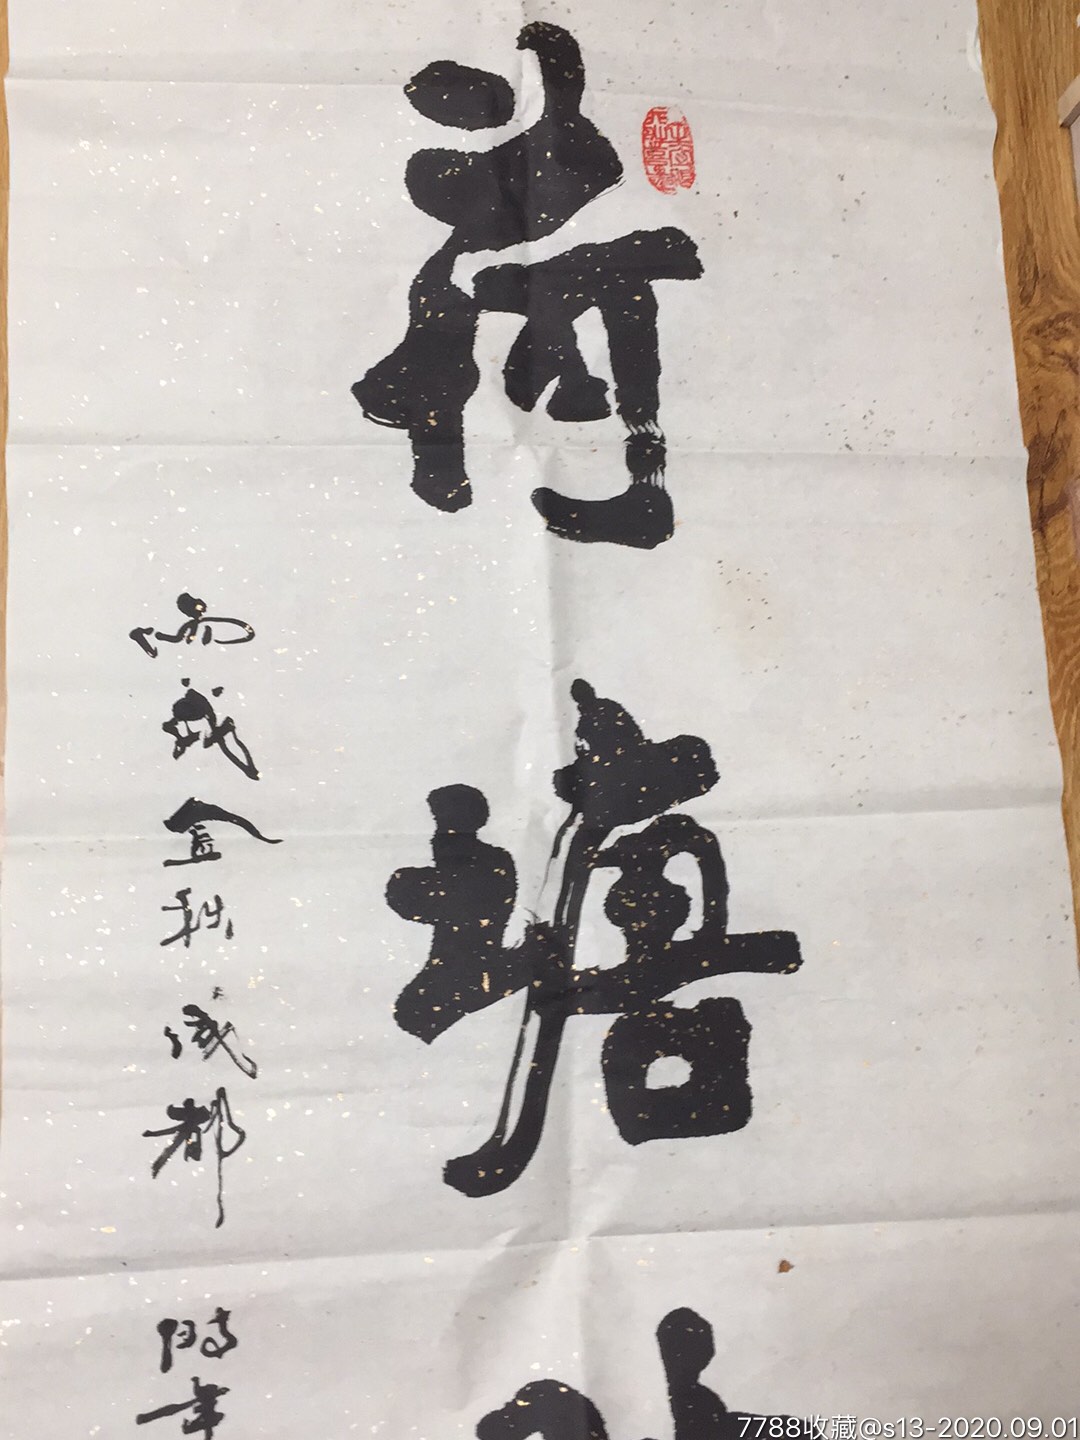 荷塘
丙戌金秋成都
時年
7788收藏@s13-2020.09.01